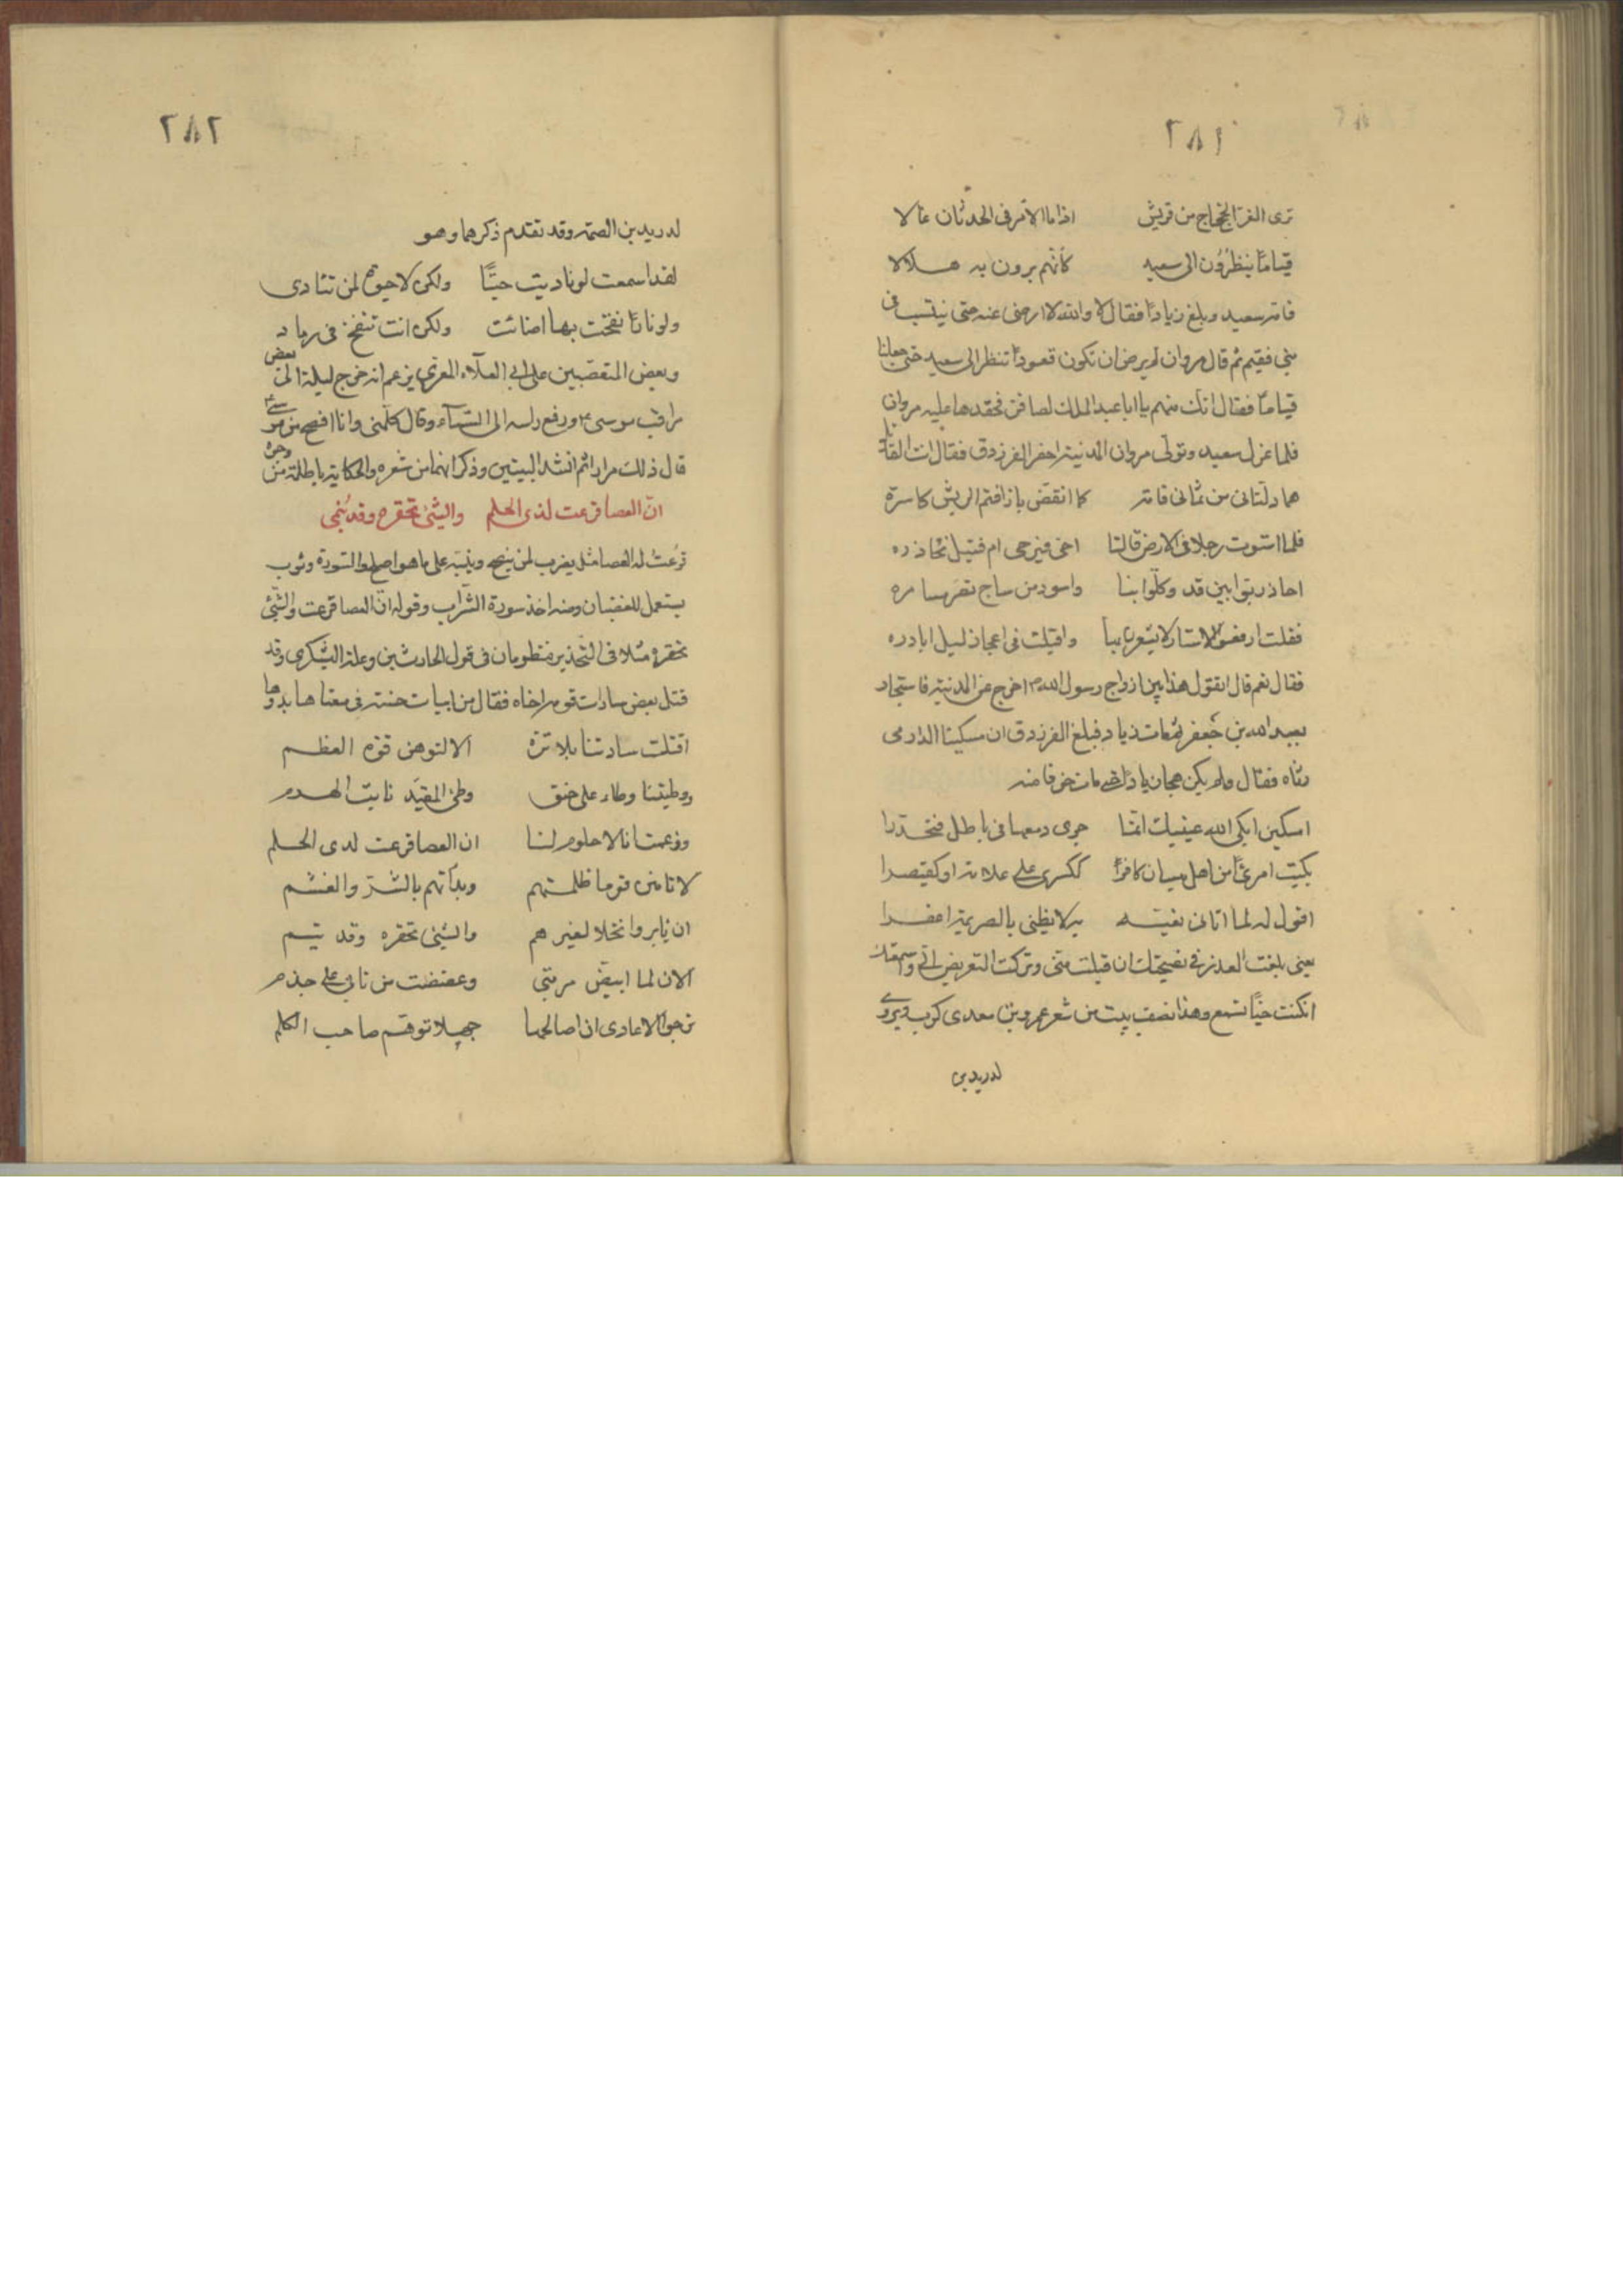 ٢٨١
ترى الغر الجحاجح من قريش اذا ما الامر فى الحدثان عالا
قياما ينظرون الى سعيد كانهم يرون به هلالا
فامنه سعيد وبلغ زيادا فقال لا والله لا ارضى عنه حتى ينتسب فى
بنى فقيم ثم قال مروان لم يرض ان نكون قعودا ننظر الى سعيد حتى جعلنا
قياما فقال انك منهم يا ابا عبد الملك لصافن فحقدها عليه مروان
فلما عزل سعيد وتولى مروان المدينة احضر الفرزدق فقال انت القائل
هما دلتانى من ثمانى قامة كما انقض باز اقتم الريش كاسره
فلما استوت رجلاى فى الارض قالتا احى فيرجى ام قتيل نحاذره
احاذر بوابين قد وكلوا بنا واسود من ساج تصر مسامره
فقلت ارفعوا الاستار لا يشعروا بنا واقبلت فى اعجاز ليل ابادره
فقال نعم قال اتقول هذا بين ازواج رسول الله اخرج عن المدينة فاستجار
بعبد الله بن جعفر ثم مات زياد فبلغ الفرزدق ان مسكينا الدارمى
رثاه فقال ولم يكن هجا زيادا حتى مات خوفا منه
امسكين ابكى الله عينيك انما جرى دمعها فى باطل فتحدرا
بكيت امرئا من اهل ميسان كافرا ككسرى على علاته او كقيصرا
اقول له لما اتانى نعيه به لا بظبى بالصريمة اعفرا
يعنى بلغت العذر فى نصيحتك ان قبلت منى وتركت التعريض لى واسمعتك
ان كنت حيا تسمع وهذا نصف بيت من شعر عمرو بن معدى كرب ويروى
لدريد بن
٢٨٢
لدريد بن الصمة وقد تقدم ذكرهما وهو
لقد اسمعت لو ناديت حيا ولكن لا حيوة لمن تنادى
ولو نارا نفخت بها اضائت ولكن انت تنفخ فى رماد
وبعض المتعصبين على ابى العلاء المعرى يزعم انه خرج ليلة الى بعض
مراقب موسى ورفع راسه الى السماء وقال كلمنى وانا افصح من موسى
قال ذلك مرارا ثم انشد البيتين وذكر انهما من شعره والحكاية باطلة من وجوه
ان العصا قرعت لذى الحلم والشئ تحقره وقد ينمى
قرعت له العصا مثل يضرب لمن ينصح وينبه على ما هو اصلح والسورة وثوب
يستعمل للغضبان ومنه اخذ سورة الشراب وقوله ان العصا قرعت والشئ
تحقره مثلا فى التحذير منظومان فى قول الحارث بن وعلة اليشكرى وقد
قتل بعض سادات قومه اخاه فقال من ابيات حسنة فى معناها
اقتلت سادتنا بلا ترة الا لتوهن قوة العظم
ووطيتنا وطاء على حنق وطئ المقيد نابت الهرم
وزعمت انا لا حلوم لنا ان العصا قرعت لذى الحلم
لا تامنن قوما ظلمتهم وبدأتهم بالشر والغشم
ان يابروا نخلا لغيرهم والشئ تحقره وقد ينمى
الان لما ابيض مسربتى وعضضت من نابى على جذم
ترجوا الاعادى ان اصالحها جهلا توهم صاحب الكلم